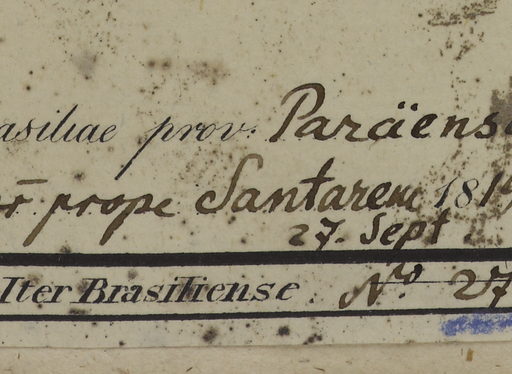 asiliae prov. Paräens
prope Santarem 181
27. Sept.
Iter Brasiliense. Nro. 27